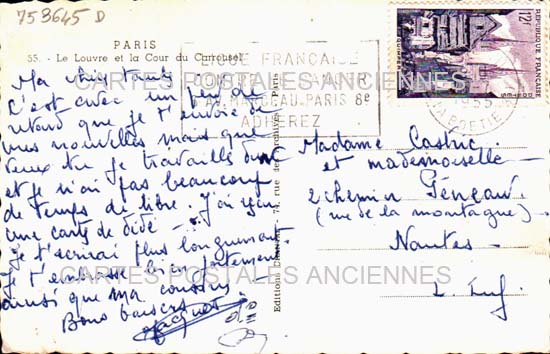 758645 D
PARIS
55. - Le Louvre et la Cour du Carrousel
Ma chic tante
C'est avec un peu de
retard que je t'envoie de
mes nouvelles mais que
veux tu je travaille dur
et je n'ai pas beaucoup
de temps de libre. J'ai reçu
une carte de dédé -
Je t'écrirai plus longuement
Je t'embrasse bien fortement
ainsi que ma cousine
Bons baisers
Jacques
Editions 74, rue des Archives - Paris
FRANÇAISE
AV. MARCEAU-PARIS 8e
ADHEREZ
1955
LA BOETIE
12F
REPUBLIQUE FRANÇAISE
QUIMPER
POSTES
Madame Castric
et mademoiselle
2 chemin
(rue de la montagne)
Nantes -
L. Inf.
CARTES POSTALES ANCIENNES
CARTES POSTALES ANCIENNES